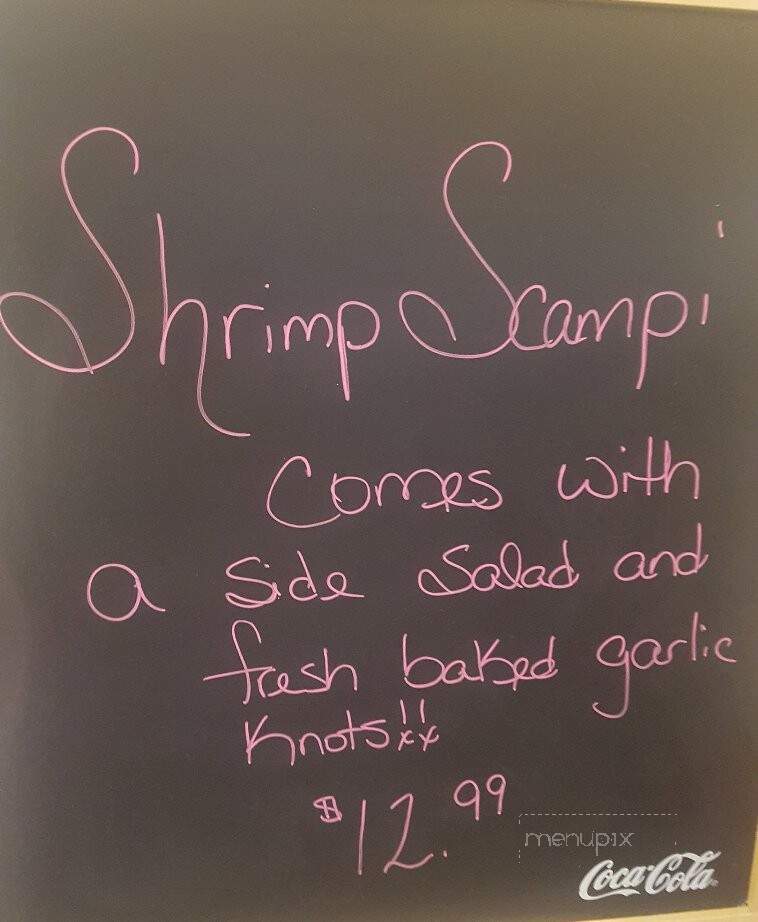 Shrimp Scampi
Comes with
a side salad and
fresh baked garlic
Knots!!
$12.99
menupix
Coca-Cola